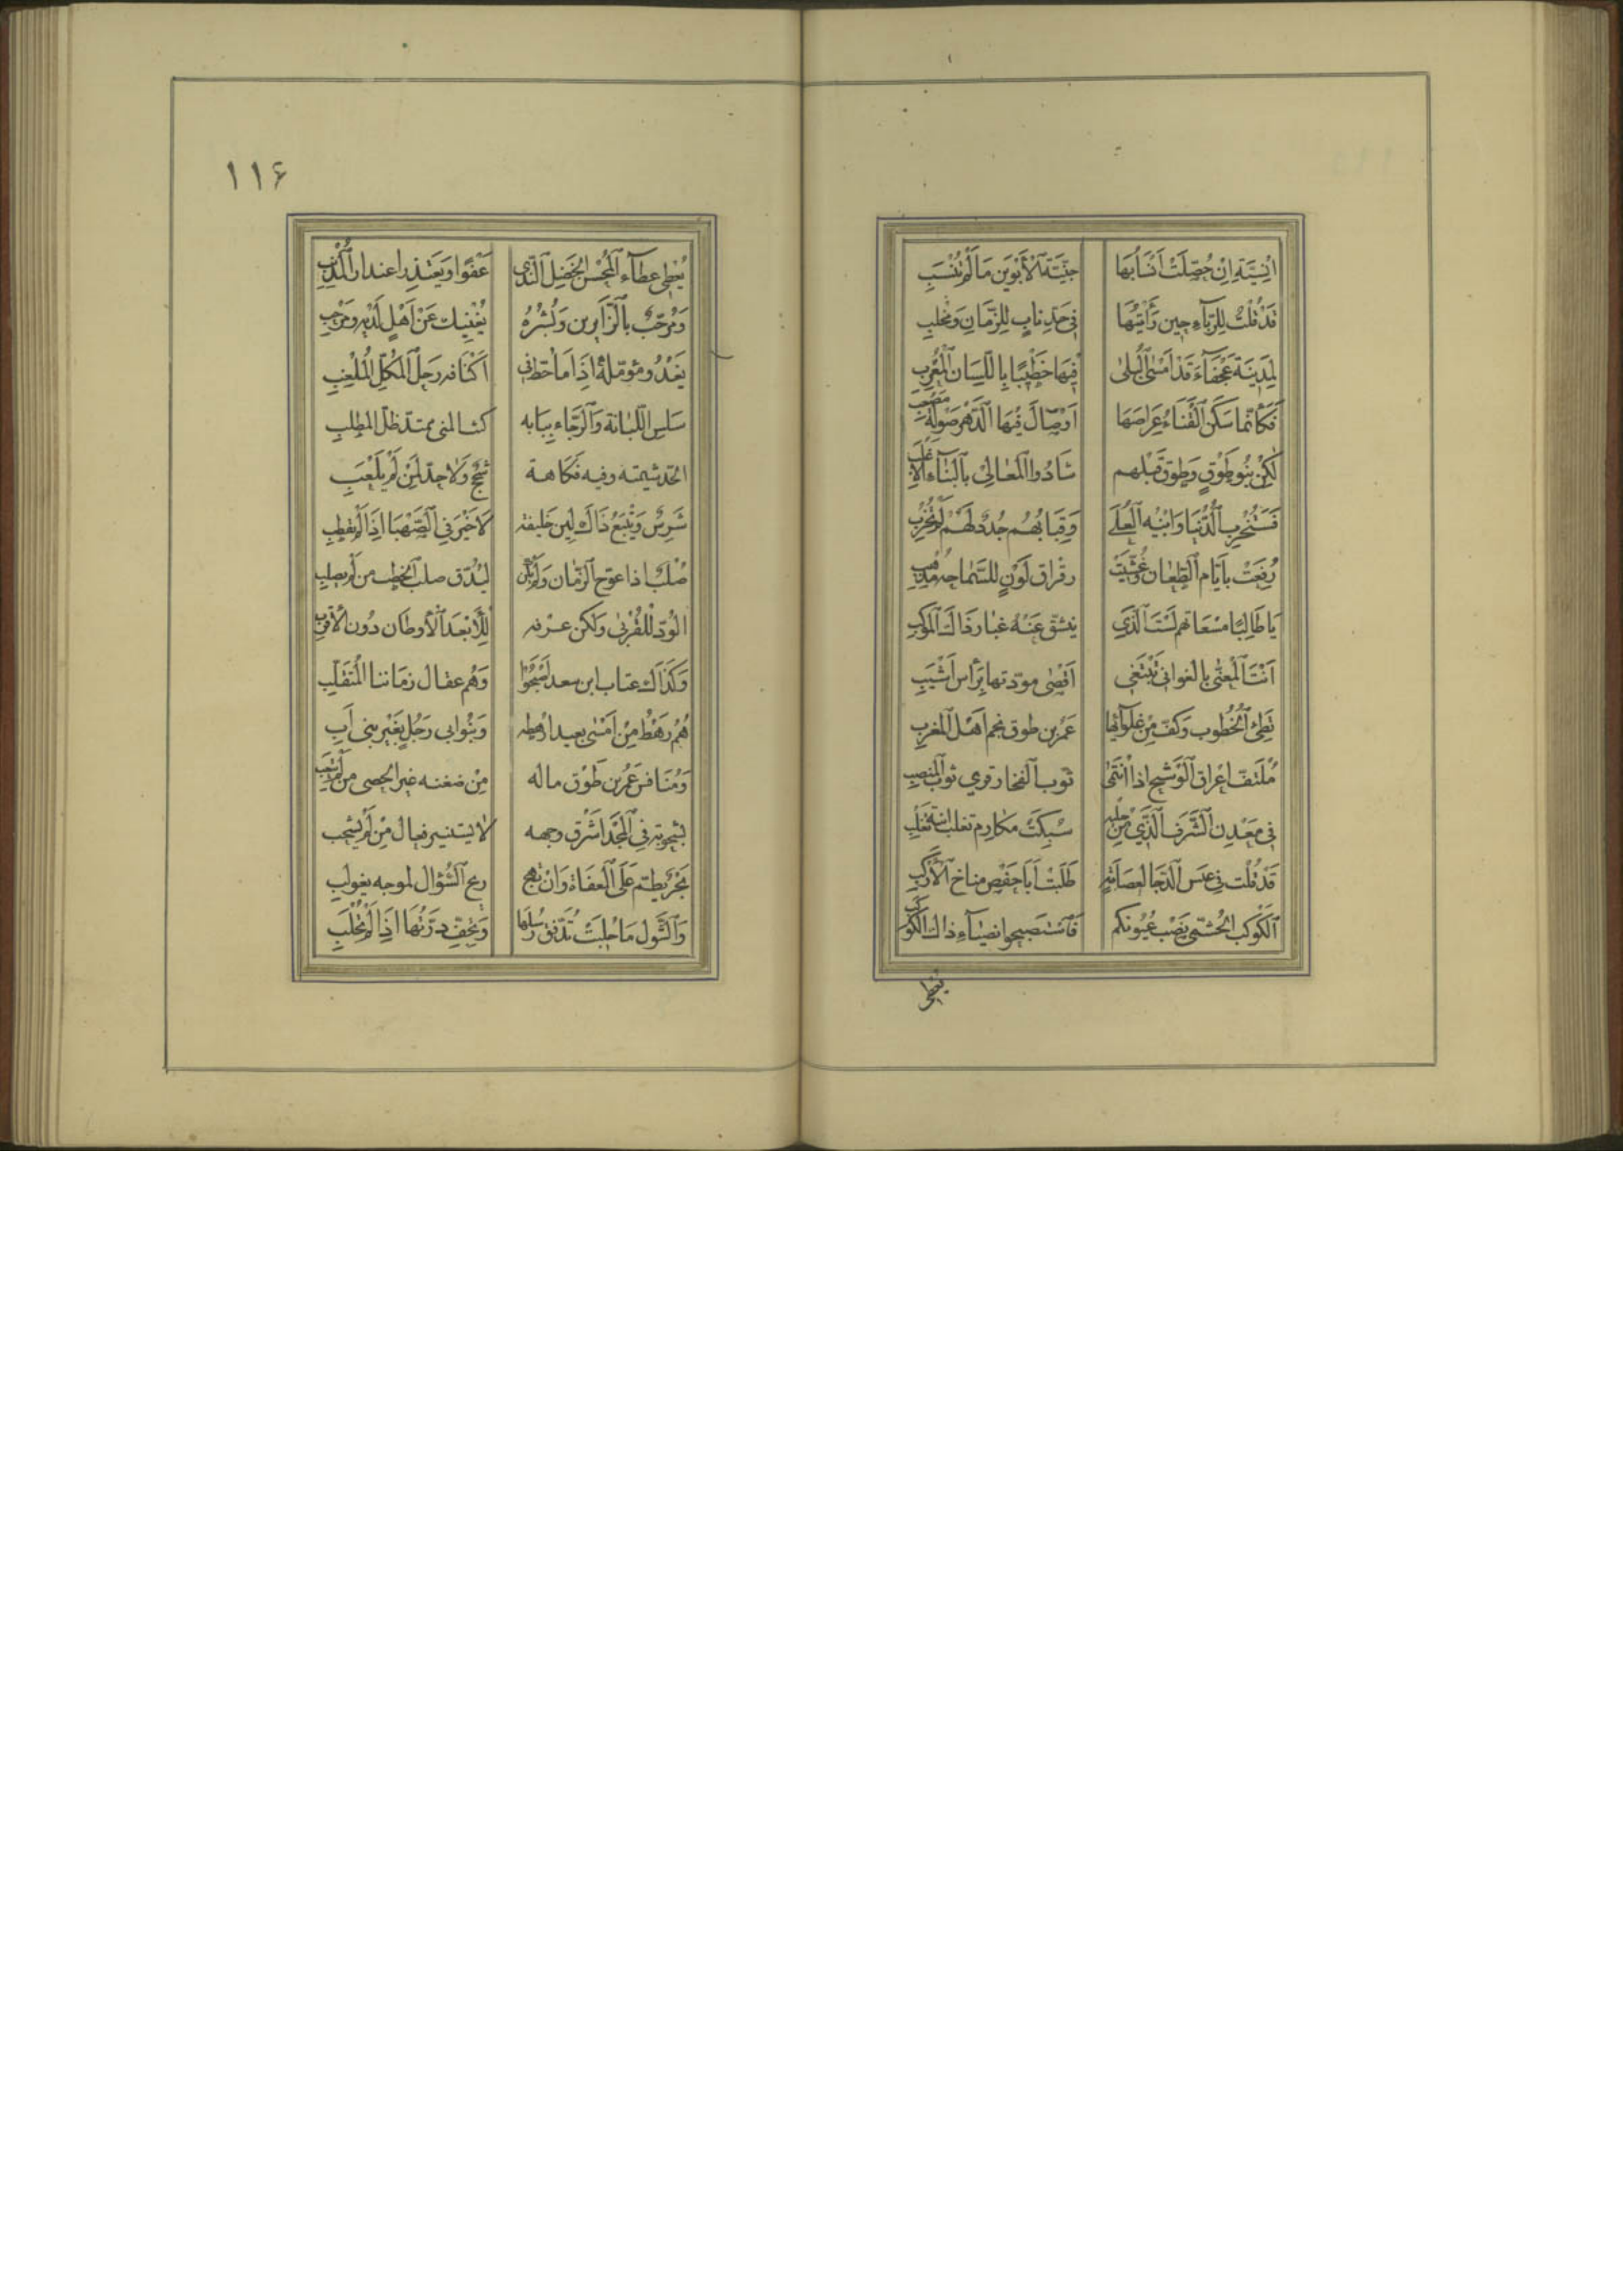 اِنْسِيَّة اِنْ حُصِّلَتْ اَنْسَابُهَا جِنِّيَّةُ الْاَبَوَيْنِ مَا لَمْ تُنْسَبِ
قَدْ قُلْتُ لِلزَّبَّاءِ حِينَ رَأَيْتُهَا فِي حَدِّ نابٍ لِلزَّمَانِ وَمِخْلَبِ
لِمَدِينَة عَجْفَآءَ قَدْ اَمْسَى الْبِلَى فِيهَا خَطِيبًا بِاللِّسَانِ الْمُعْرِبِ
فَكَأَنَّمَا سَكَنَ الْفَنَاءُ عِرَاصَهَا اَوْ صَالَ فِيهَا الدَّهْرُ صَوْلَةَ مُغْضَبِ
لَكِنْ بَنُو طَوْقٍ وَطَوْقٌ قبلهم شَادُوا الْمَعَالِي بِالْبَنَاءِ الاَغْلَبِ
فَسَتَخْرِبُ الدُّنْيَا وَاَبْنِيَةُ الْعُلَى وَقِبَابُهُمْ جُدُدٌ لَهُمْ لَمْ تَخْرَبِ
رُفِعَتْ بأَيَّامِ الطِّعَانِ وغُشِّيَتْ رقراق لَوْنٍ للسَّمَاحَةِ مُذْهَبِ
يَا طَالِبًا مَسْعَاتَهُمْ لَسْتَ الَّذِي ينشق عَنْهُ غبار ذَاكَ الْمَوْكِبِ
اَنْتَ الْمُعَنَّى بالغواني تَبْتَغِي اَقْصَى مودّتها بِرَأْسٍ اَشْيَبِ
وَطِئَ الْخُطُوبَ وَكَفَّ مِنْ غُلَوَآئِهَا عُمَرُ بن طوق نجم اَهْلِ الْمَغْرِبِ
مُلْتَفُّ اعْرَاقِ الْوَشِيجِ اذا انْتَمَى
فِي مَعْدِنِ الشَّرَفِ الَّذِي مِنْ حَلْيِهِ سُبِكَتْ مكارم تغلب ابْنَة تَغْلِبِ
قَدْ قُلْت في غلس الدُّجَا لعِصَابَةٍ طَلَبَتْ اَبَا حَفْصٍ مناخ الْاَرْكُبِ
اَلْكَوْكَب الْجُشَمِيّ نَصْب عُيُونِكُم فَاسْتَصْبِحُوا بضيآء ذاك الْكَوْكَبِ
يُعْطِي
١١۶
يُعْطِي عطآء الْمُحْسِنِ الْخَضِلِ النَّدَى عَفْوًا وَيَعْتَذِر اعتذار الْمُذْنِبِ
وَمُرَحِّبٌ بِالزَّائِرِين وَبِشْرُهُ يُغْنِيكَ عَنْ اَهْلٍ لَدَيْهِ وَمَرْحَبِ
يَغْدُو مؤمّله اِذَا مَا حَطَّ فِي اَكْنَافه رَحْلَ الْمُكِلِّ الْمُلْغِبِ
سَلِسَ اللُّبَانَةِ وَالرَّجَاءِ بِبَابِه كثب المنى ممتدّ ظلّ المطلبِ
الجدّ شيمته وفيه فَكَاهة سُجُحٌ وَلَا جدّ لِمَنْ لَمْ يَلْعَبِ
شَرِسٌ وَيُتْبَعُ ذَاكَ لِينَ خَلِيقَةٍ لَا خَيْرَ فِي الصَّهْبَا اِذَا لَمْ تقطبِ
صُلْبٌ اذا عوّج الزَّمان وَلَمْ يَكُنْ ليُلَيِّنَ صلب الخطب من لم يصلبِ
الْوُدّ لِلْقُرْبَى وَلَكِنْ عُرْفه لِلْأَبْعَدِ الْأَوطَان دُون الْأَقْرَبِ
وَكَذَاكَ عتّاب ابن سعد اَصْبَحُوا وَهُم عقال زَمَاننا الْمُتَقَلِّبِ
هُمْ رَهْطُ مَنْ اَمْسَى بعيدا رَهْطه وَبَنُوا ابي رَجُلٍ بِغَيْر بني اَبِ
وَمُنَافس عُمَرَ بن طَوْقٍ ماله مِنْ ضغنه غير الحصى
بشحوبه فِي الْمَجْدِ اَشْرَقَ وجهه لا يستنير فعال مَنْ لَمْ يَشْحَب
بَحْرٌ يطمّ عَلَى الْعُفَاة وَاِنْ تَهِج ريح السُّؤال لموجه يغلولبِ
وَالشَّوْل مَا حُلِبَتْ تَدَفَّقَ رِسْلُهَا وَتَجِفُّ دِرَّتُهَا اِذَا لَمْ تُحْلَبِ